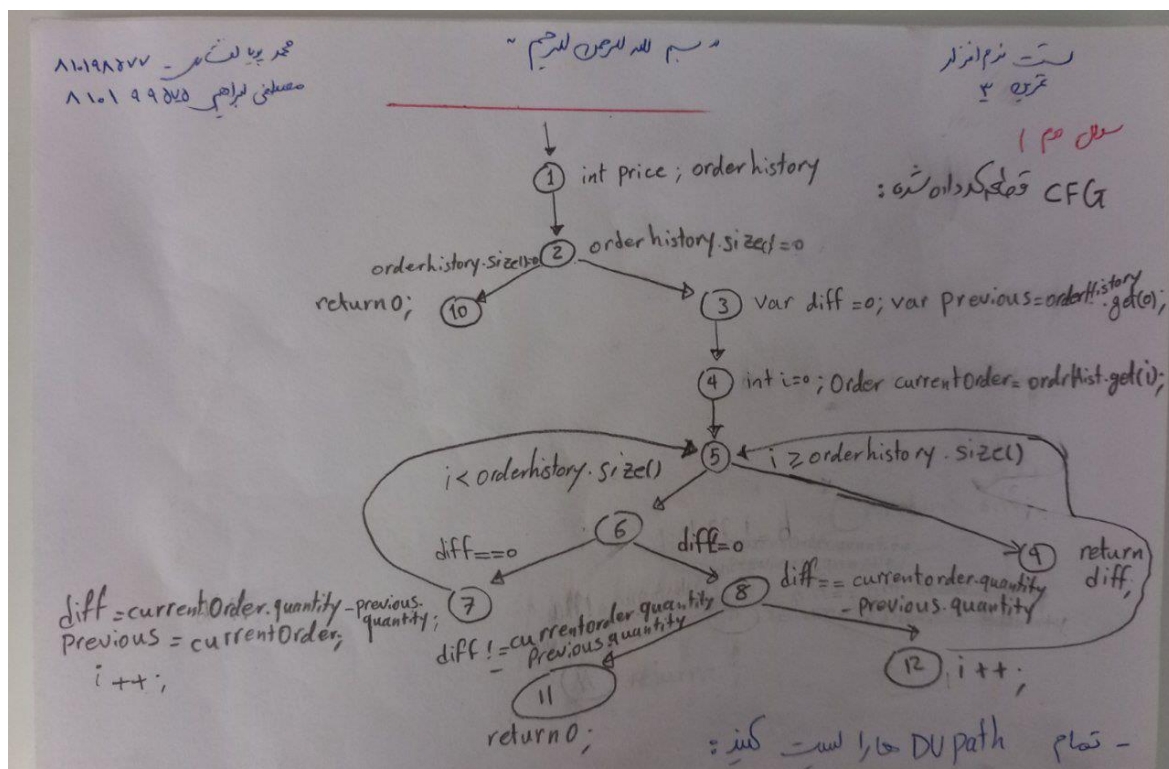 بسم الله الرحمن الرحیم
تست نرم افزار
تمرین ۳
محمد پویا - ۸۱۰۱۹۸۵۷۷
مصطفی ابراهیمی ۸۱۰۱۹۹۵۷۵
سوال دوم ۱
CFG قطعه کد داده شده :
1 int price ; orderhistory
2 orderhistory.size()!=0
orderhistory.size()=0
return 0; 10
3 var diff =0; var previous=orderHistory.get(0);
4 int i=0 ; Order currentOrder= ordrHist.get(i);
5
i<orderhistory.size()
i ≥ orderhistory.size()
6
diff==0
diff!=0
9 return diff;
7
diff =currentOrder.quantity-previous.quantity;
Previous = currentOrder;
i ++;
8
diff== currentorder.quantity
- previous.quantity
diff !=currentorder quantity
- Previous.quantity
12 i++;
11
return 0;
- تمام DU path ها را لیست کنید :